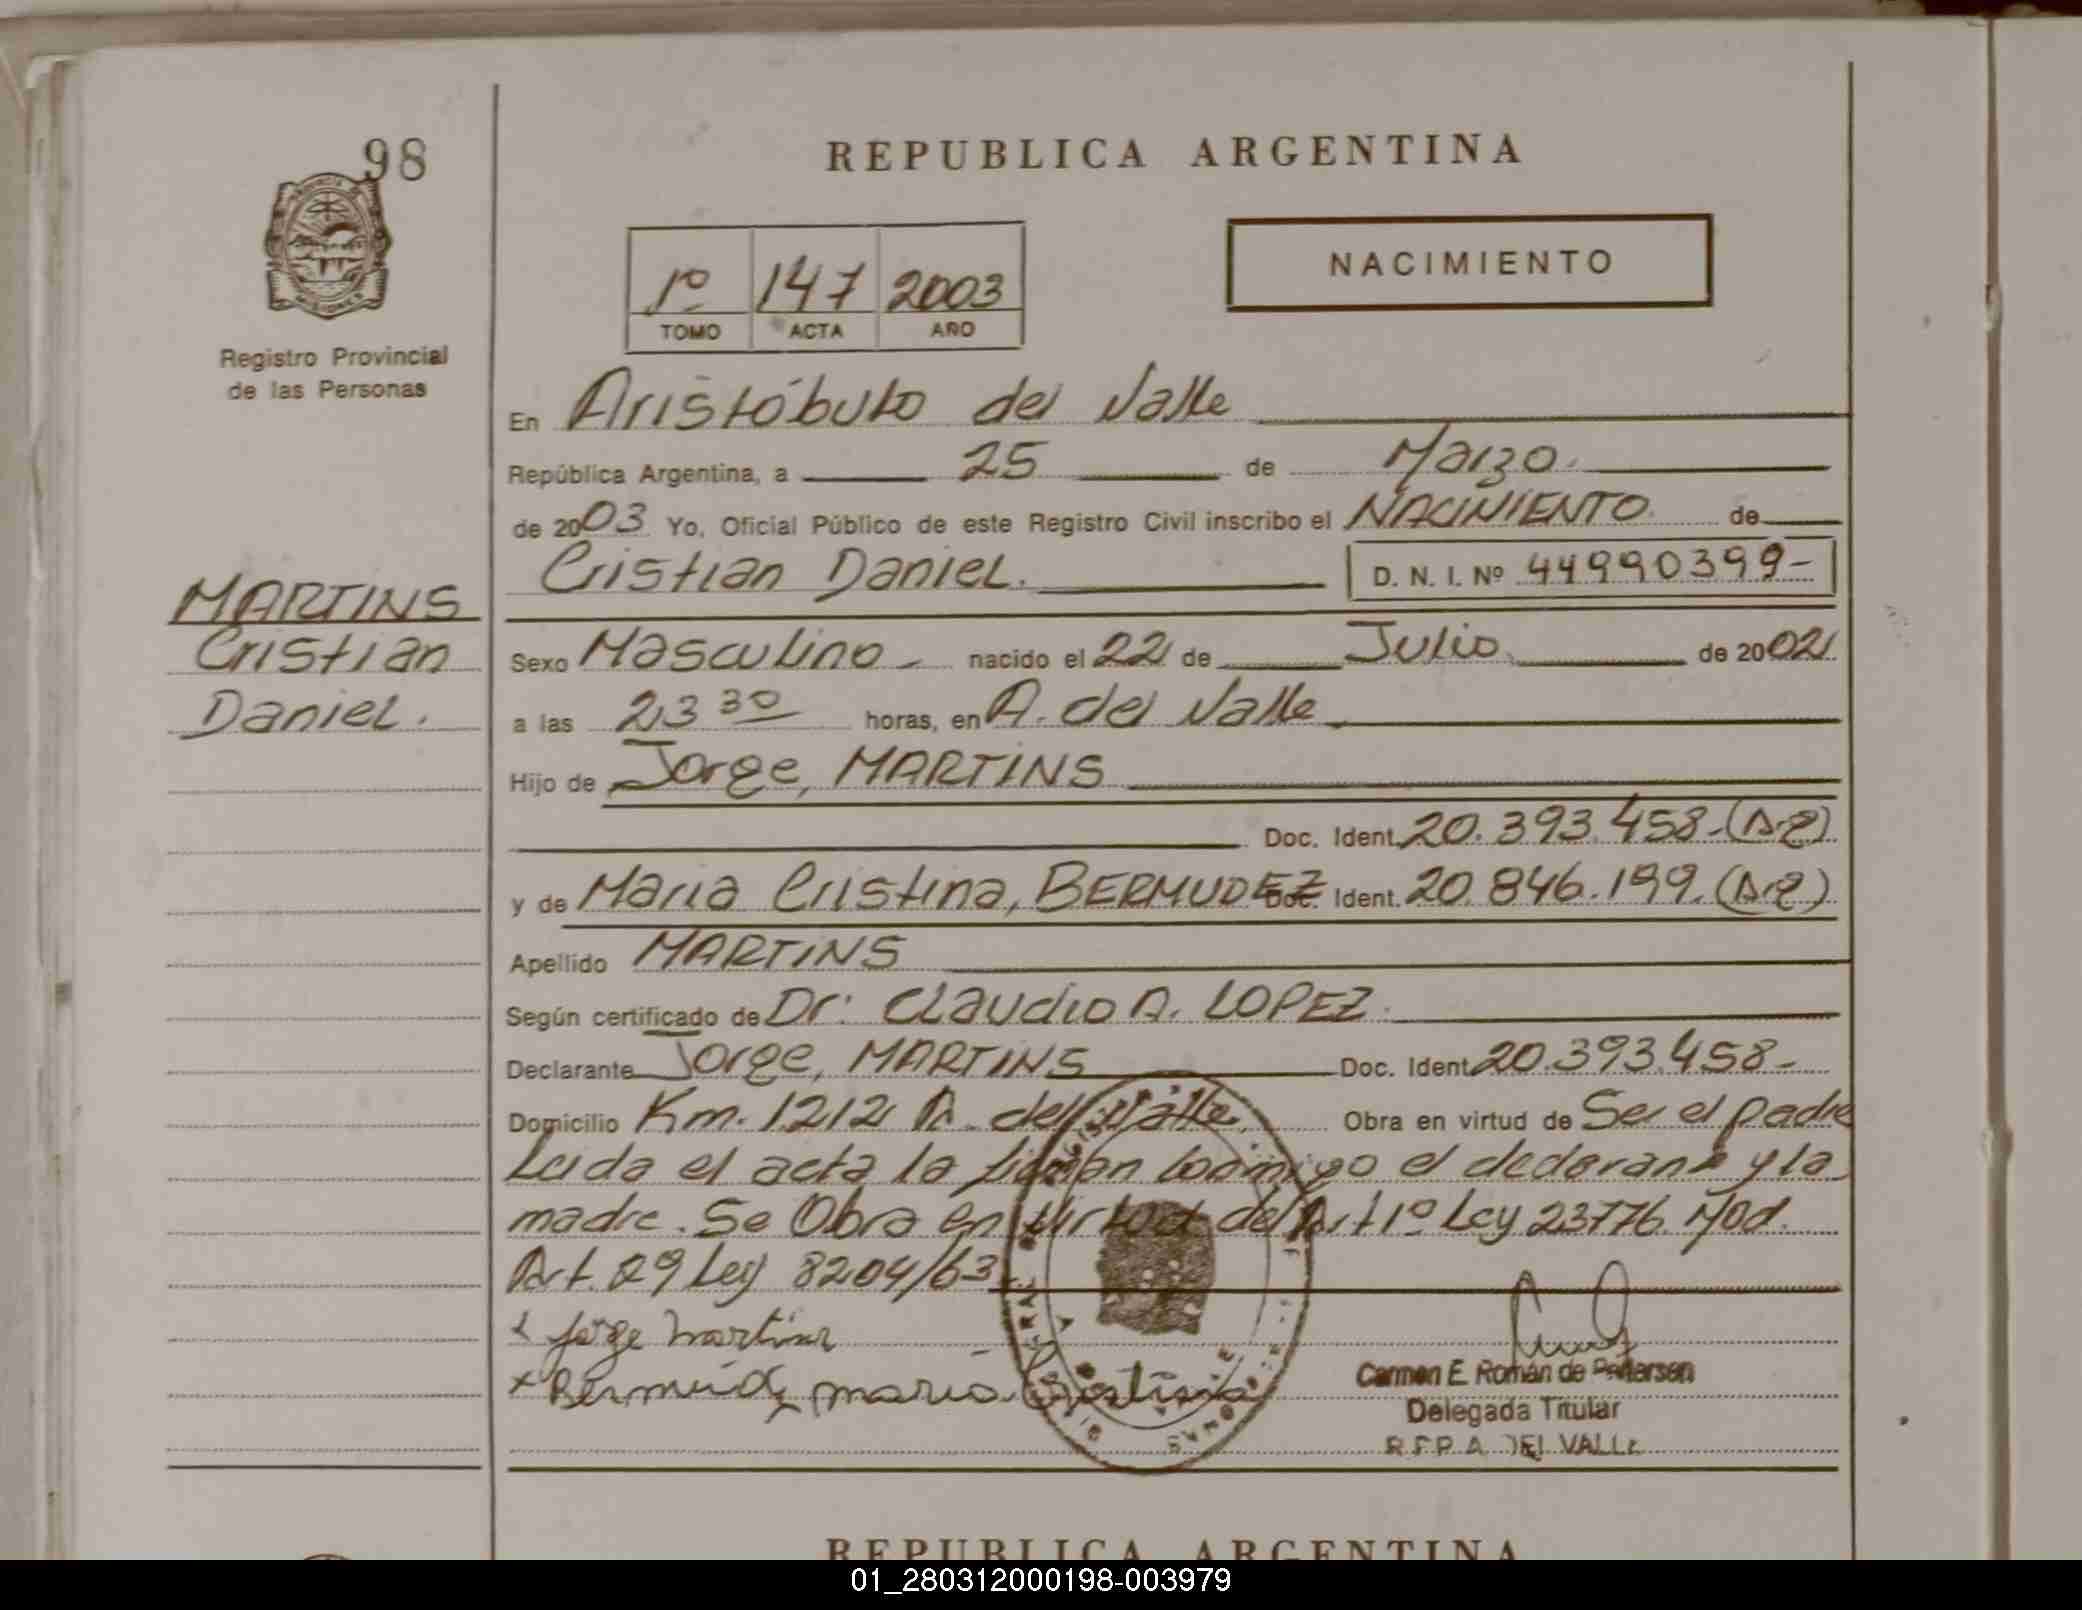 98
REPUBLICA ARGENTINA
1º 147 2003
TOMO ACTA AÑO
NACIMIENTO
Registro Provincial
de las Personas
En Aristóbulo del Valle
República Argentina, a 25 de Marzo.
de 2003 Yo, Oficial Público de este Registro Civil inscribo el NACIMIENTO de
Cristian Daniel. D. N. I. Nº 44990399-
MARTINS
Cristian
Daniel.
Sexo Masculino - nacido el 22 de Julio de 2002
a las 23 30 horas, en A. del Valle
Hijo de Jorge, MARTINS
Doc. Ident. 20.393.458-
y de Maria Cristina, BERMUDEZ Doc. Ident. 20.846.199.
Apellido MARTINS
Según certificado de Dr. Claudio A. LOPEZ.
Declarante Jorge, MARTINS Doc. Ident. 20.393.458-
Domicilio Km. 1212 A. del Valle. Obra en virtud de Ser el padre
Leida el acta la firman conmigo el declarante y la
madre. Se Obra en virtud del Art 1º Ley 23776. Mod.
Art. 29 Ley 8204/63
x Jorge Martins
x Bermudez maria Cristina
Carmen E. Román de Pedersen
Delegada Titular
R.P.P. A. DEL VALLE
REPUBLICA ARGENTINA
01_280312000198-003979